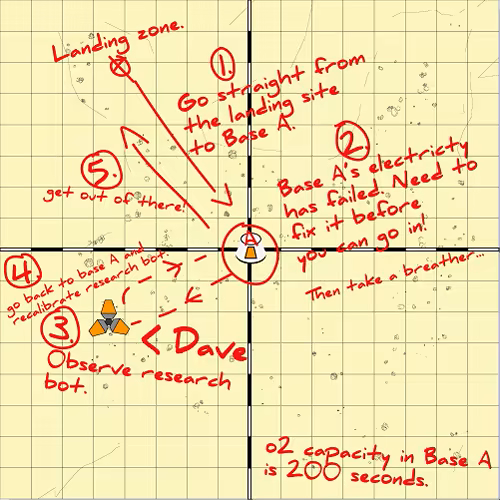 Landing zone.
1.
Go straight from
the landing site
to Base A.
2.
Base A's electricty
has failed. Need to
fix it before
you can go in!
Then take a breather...
5.
get out of there!
A
4
go back to base A and
recalibrate research bot.
3.
< Dave
Observe research
bot.
o2 capacity in Base A
is 200 seconds.